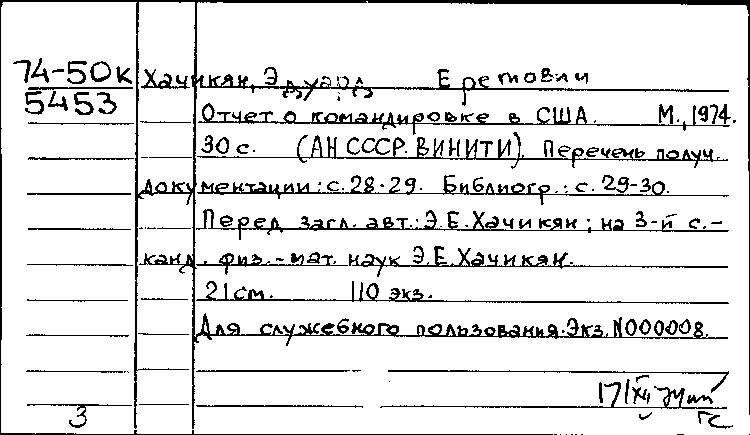 74-50к Хачикян, Эдуард Еретовли
5453
Отчет о командировке в США. М., 1974.
30 с. (АН СССР. ВИНИТИ). Перечень получ.
документации: с. 28-29. Библиогр.: с. 29-30.
Перед загл. авт.: Э.Е. Хачикян; на 3-й с. -
канд. физ.-мат. наук Э.Е. Хачикян.
21 см. 110 экз.
Для служебного пользования. Экз. N000008.
17/XII
3 ГС